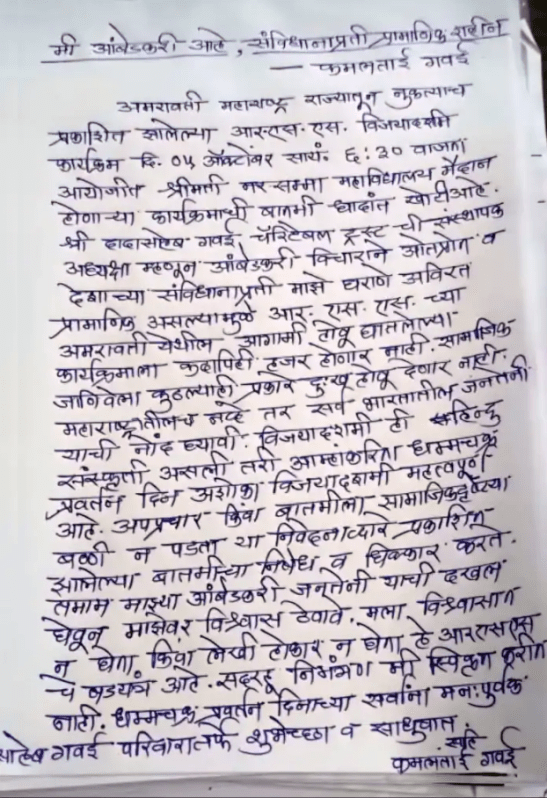 मी आंबेडकरी आहे, संविधानाप्रती प्रामाणिक राहीन
— कमलताई गवई
अमरावती महाराष्ट्र राज्यातून नुकत्याच
प्रकाशित झालेल्या आर.एस.एस. विजयादशमी
कार्यक्रम दि. ०५ ऑक्टोंबर सायं. ६:३० वाजता
आयोजीत श्रीमती नरसम्मा महाविद्यालय मैदान
होणाऱ्या कार्यक्रमाची बातमी धादांत खोटी आहे.
श्री दादासाहेब गवई चॅरिटेबल ट्रस्ट ची संस्थापक
अध्यक्षा म्हणून आंबेडकरी विचाराने ओतप्रोत व
देशाच्या संविधानाप्रती माझे घराणे अविरत
प्रामाणिक असल्यामुळे आर. एस. एस. च्या
अमरावती येथील आगामी होवू घातलेल्या
कार्यक्रमाला कदापिही हजर होणार नाही. सामाजिक
जाणिवेला कुठल्याही प्रकारे दुःख होवू देणार नाही.
महाराष्ट्रातीलच नव्हे तर सर्व भारतातील जनतेनी
याची नोंद घ्यावी. विजयादशमी ही हिन्दु
संस्कृती असली तरी आम्हांकरिता धम्मचक्र
प्रवर्तन दिन अशोका विजयादशमी महत्वपूर्ण
आहे. अपप्रचार किंवा बातमीला सामाजिकदृष्ट्या
बळी न पडता या निवेदनाव्दारे प्रकाशित
झालेल्या बातमीचा निषेध व धिक्कार करते.
तमाम माझ्या आंबेडकरी जनतेनी याची दखल
घेवून माझेवर विश्वास ठेवावे. मला विश्वासात
न घेता किंवा लेखी होकार न घेता हे आरएसएस
चे षडयंत्र आहे. सदरहू निमंत्रण मी स्विकृत करीत
नाही. धम्मचक्र प्रवर्तन दिनाच्या सर्वांना मनःपुर्वक
साहेब गवई परिवारातर्फे शुभेच्छा व साधुवाद.
सही
कमलताई गवई